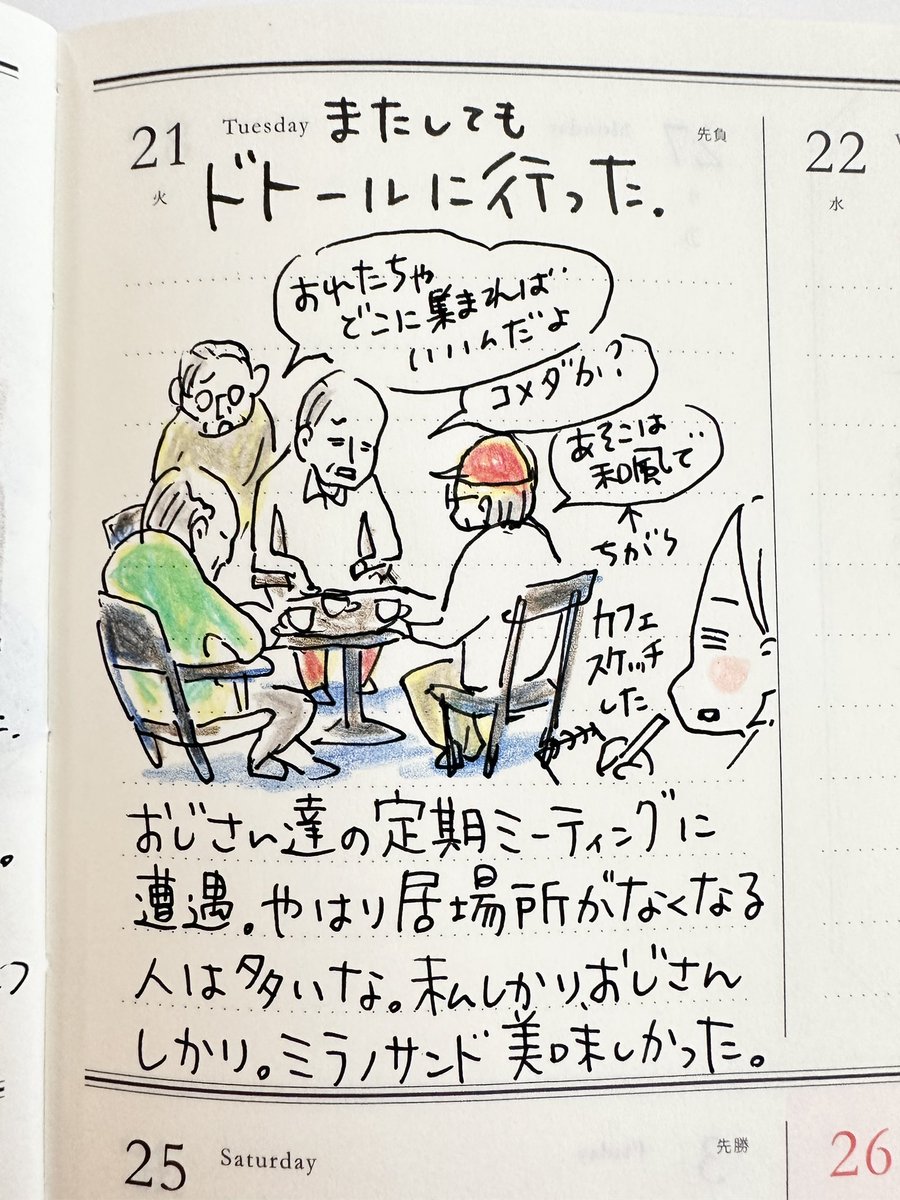 21
Tuesday
火
先負
またしても
ドトールに行った.
おれたちゃ
どこに集まれば
いいんだよ
コメダか?
あそこは
和風で
↑
ちがう
カフェ
スケッチ
した
おじさん達の定期ミーティングに
遭遇。やはり居場所がなくなる
人は多いな。私しかり、おじさん
しかり。ミラノサンド美味しかった。
22
水
25
Saturday
先勝
26